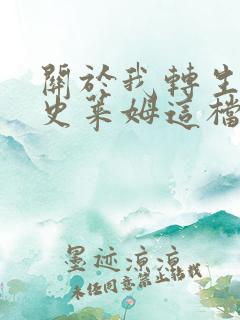 關於我轉生
史萊姆這檔
墨迹涼涼
未任同意禁止轉載